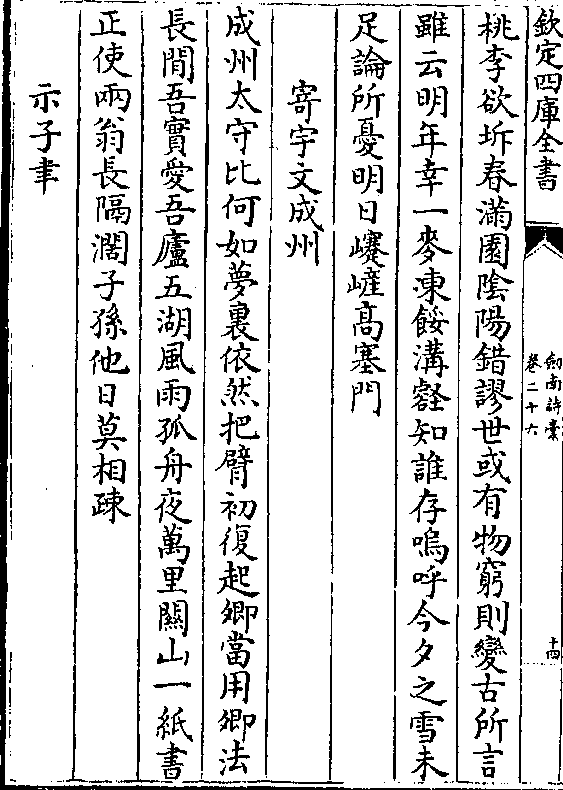 欽定四庫全書
劍南詩稾
卷二十六
十四
桃李欲坼春滿園陰陽錯謬世或有物窮則變古所言
雖云明年幸一麥凍餒溝壑知誰存嗚呼今夕之雪未
足論所憂明日𡾋嵼髙塞門
寄宇文成州
成州太守比何如夢裏依然把臂初復起卿當用卿法
長閒吾實愛吾廬五湖風雨孤舟夜萬里關山一紙書
正使兩翁長隔濶子孫他日莫相疎
示子聿